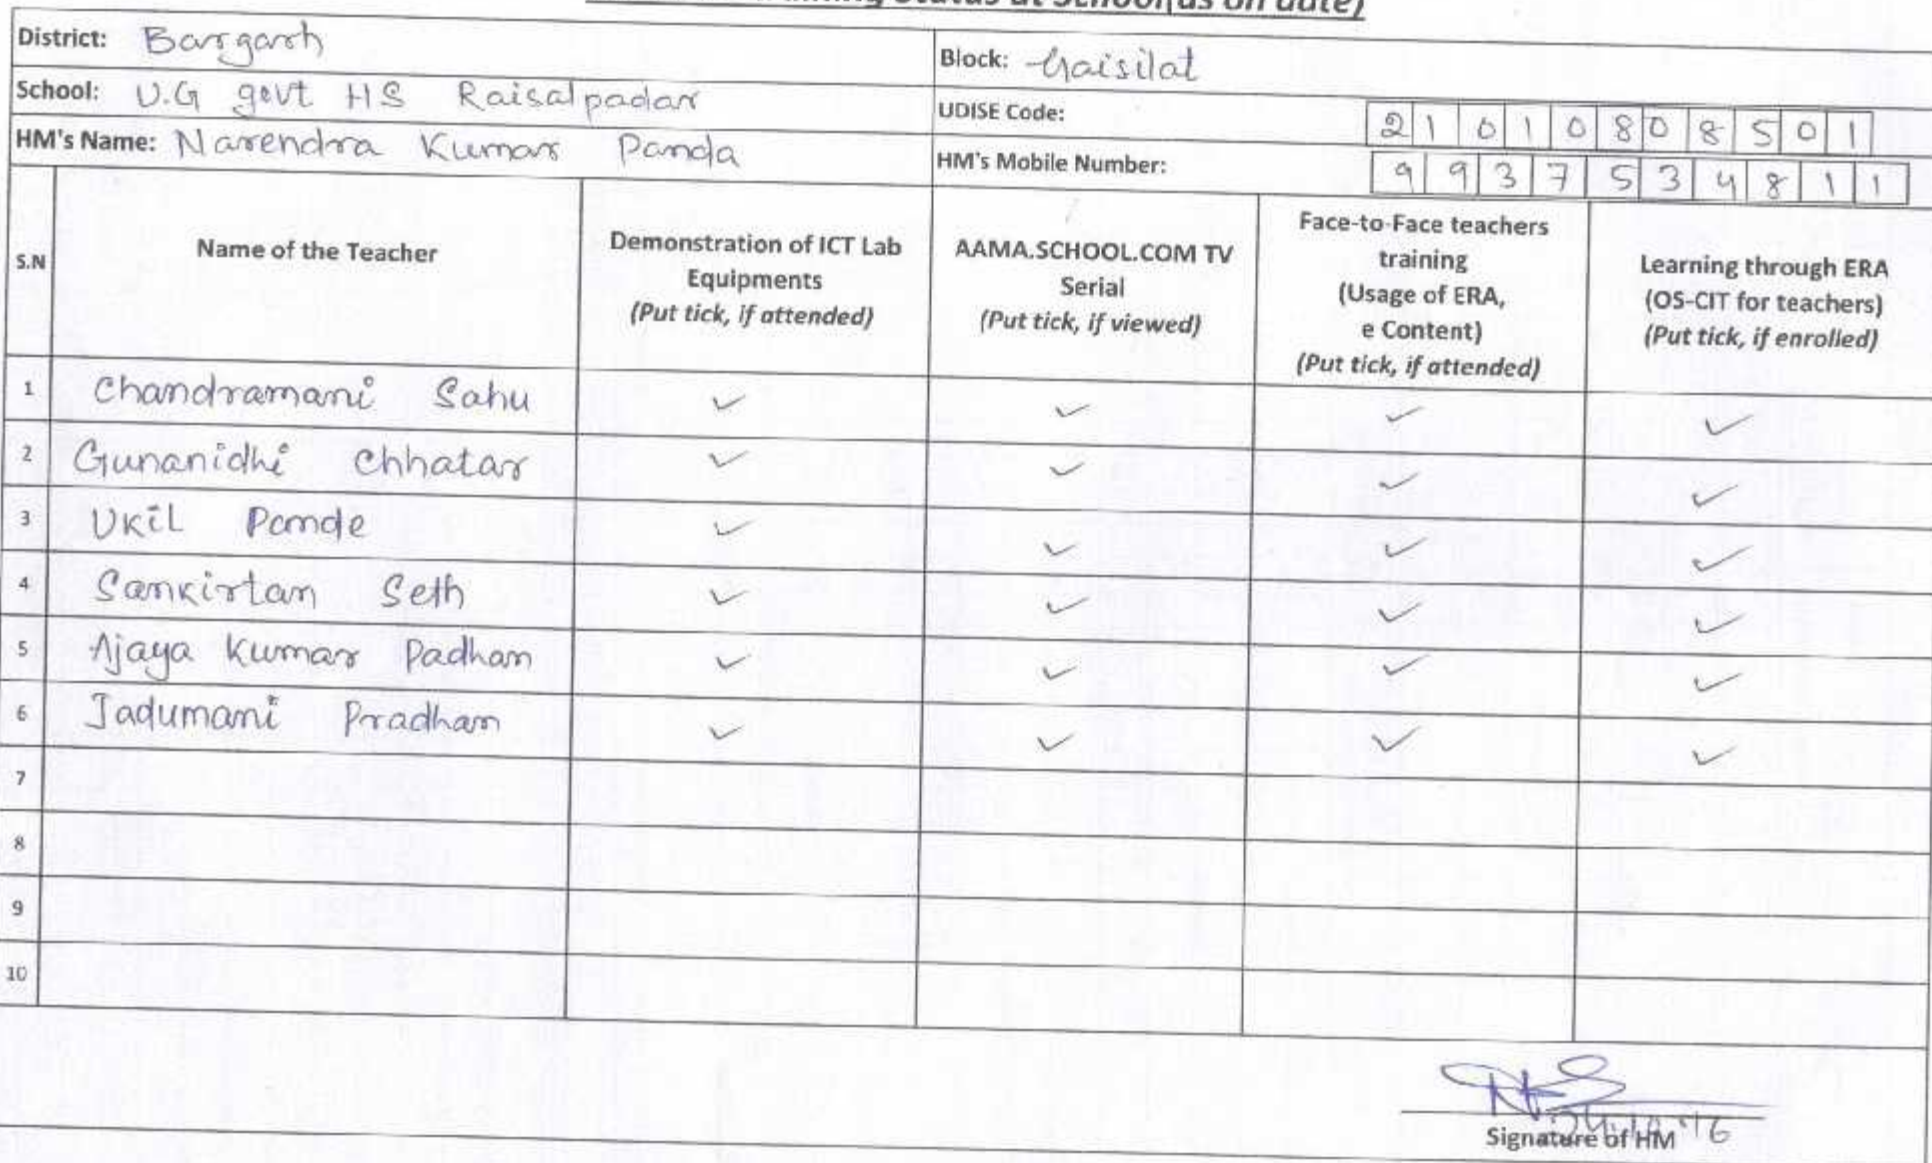 Training Status at School(as on date)
District: Bargarh
Block: Gaisilat
School: U.G govt HS Raisalpadar
UDISE Code: 21010808501
HM's Name: Narendra Kumar Panda
HM's Mobile Number: 9937534811
S.N
Name of the Teacher
Demonstration of ICT Lab
Equipments
(Put tick, if attended)
AAMA.SCHOOL.COM TV
Serial
(Put tick, if viewed)
Face-to-Face teachers
training
(Usage of ERA,
e Content)
(Put tick, if attended)
Learning through ERA
(OS-CIT for teachers)
(Put tick, if enrolled)
1 Chandramani Sahu ✓ ✓ ✓ ✓
2 Gunanidhi Chhatar ✓ ✓ ✓ ✓
3 Ukil Pande ✓ ✓ ✓ ✓
4 Sankirtan Seth ✓ ✓ ✓ ✓
5 Ajaya Kumar Padhan ✓ ✓ ✓ ✓
6 Jadumani Pradhan ✓ ✓ ✓ ✓
7
8
9
10
Signature of HM